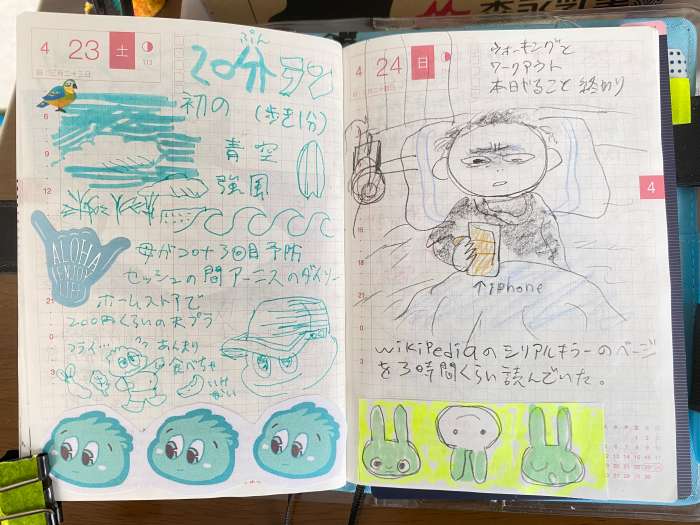 4 23 土
113
20分ラン
ぷん
初の
(歩き1分)
青空
強風
ALOHA
ENJOY
LIFE
母がコロナ3回目予防
セッシュの間アーニスのダイソー
ホームストアで
200円くらいの天プラ
フライ… あんまり
食べちゃ
いけ
ない
4 24 日
114
ウォーキングと
ワークアウト
本日やること終わり
↑iPhone
wikipediaのシリアルキラーのページ
を3時間くらい読んでいた。
4
6
9
12